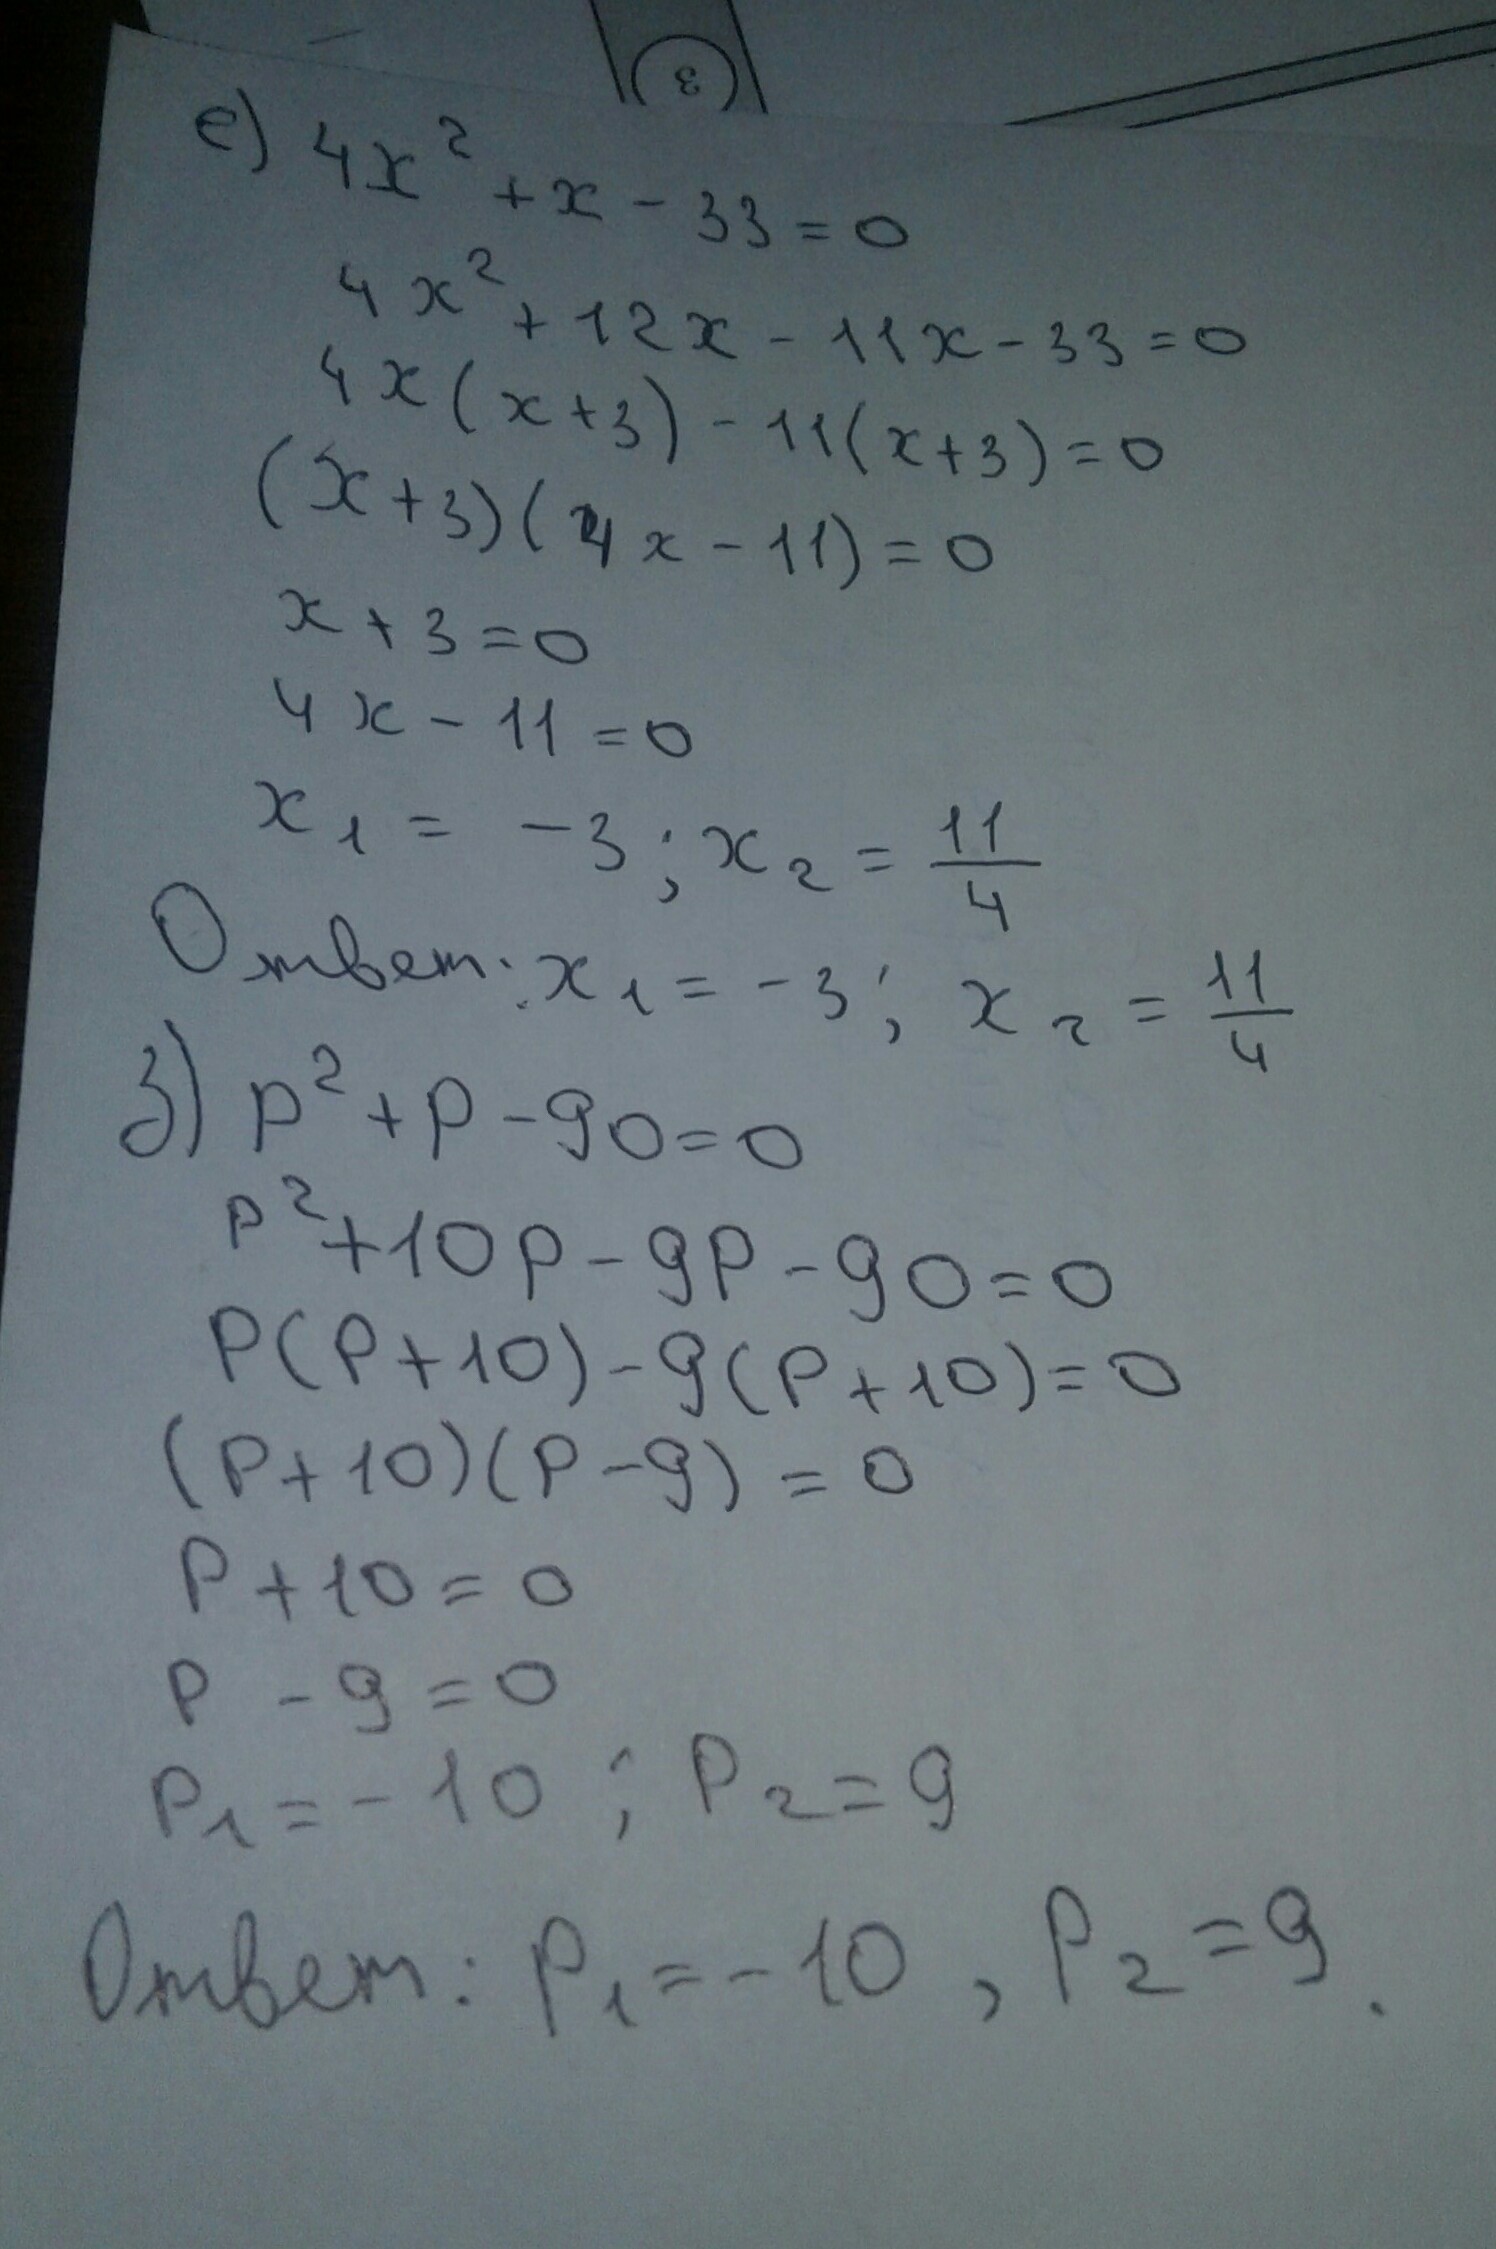 3
е) 4x² + x - 33 = 0
4x² + 12x - 11x - 33 = 0
4x(x+3) - 11(x+3) = 0
(x+3)(4x - 11) = 0
x + 3 = 0
4x - 11 = 0
x₁ = -3; x₂ = 11/4
Ответ: x₁ = -3; x₂ = 11/4
з) p² + p - 90 = 0
p² + 10p - 9p - 90 = 0
p(p+10) - 9(p+10) = 0
(p+10)(p-9) = 0
p + 10 = 0
p - 9 = 0
p₁ = -10; p₂ = 9
Ответ: p₁ = -10, p₂ = 9.